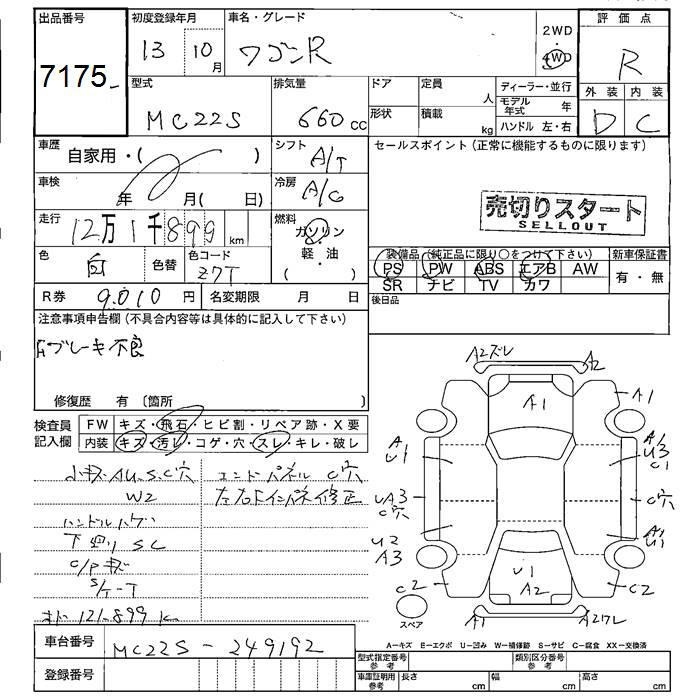 出品番号
7175
初度登録年月
13 10月
車名・グレード
ワゴンR
2WD
4WD
評価点
R
型式
MC22S
排気量
660cc
ドア
形状
定員 人
積載 kg
ディーラー・並行
モデル年式 年
ハンドル 左・右
外装 内装
D C
車歴
自家用・( )
シフト
A/T
セールスポイント(正常に機能するものに限ります)
車検
年 月( 日)
冷房
A/C
売切りスタート
SELLOUT
走行
12万1千899km
燃料
ガソリン
軽・油
( )
色
白
色替
色コード
Z7T
装備品(純正品に限り○をつけて下さい)
PS PW ABS エアB AW
SR ナビ TV カワ
新車保証書
有・無
R券 9,010円
名変期限 月 日
後日品
注意事項申告欄(不具合内容等は具体的に記入して下さい)
Fブレーキ不良
修復歴 有〔箇所
検査員記入欄
FW キズ・飛石・ヒビ割・リペア跡・X要
内装 キズ・汚レ・コゲ・穴・スレ・キレ・破レ
小キズ AU.S.C穴
W2
ハンドルハゲ
下廻り SC
C/Pキズ
S/ケース
オド 121.899K
エンドパネル C穴
左右Fインパネ修正
A2ズレ A2
A1 A1
A U1
A1 U3 C1
UA3 C穴
C穴
U2 A3
A1 U1
U1 A2
C2 C2
スペア
A1 A2ワレ
A―キズ E―エクボ U―凹み W―補修跡 S―サビ C―腐食 XX―交換済
車台番号
MC22S-249192
登録番号
型式指定番号 参考
類別区分番号 参考
車庫証明用 参考
長さ cm
幅 cm
高さ cm